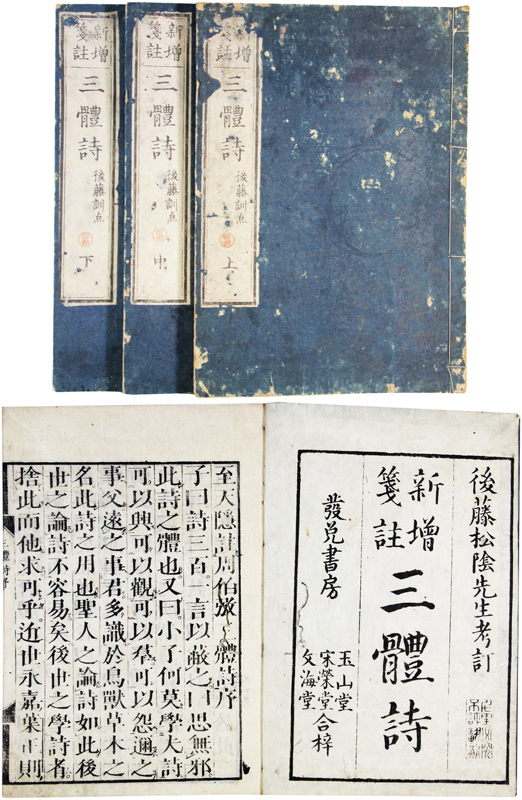 新增
箋註
三體詩
後藤訓点
上
新增
箋註
三體詩
後藤訓点
中
新增
箋註
三體詩
後藤訓点
下
後藤松陰先生考訂
新增
箋註
三體詩
發兌書房
玉山堂
宋榮堂
文海堂
合梓
至天隱註周伯弜 體詩序
子曰詩三百一言以蔽之曰思無邪
此詩之體也又曰小子何莫學夫詩
可以興可以觀可以羣可以怨邇之
事父遠之事君多識於鳥獸草木之
名此詩之用也聖人之論詩如此後
世之論詩不容易矣後世之學詩者
捨此而他求可乎近世永嘉葉正則